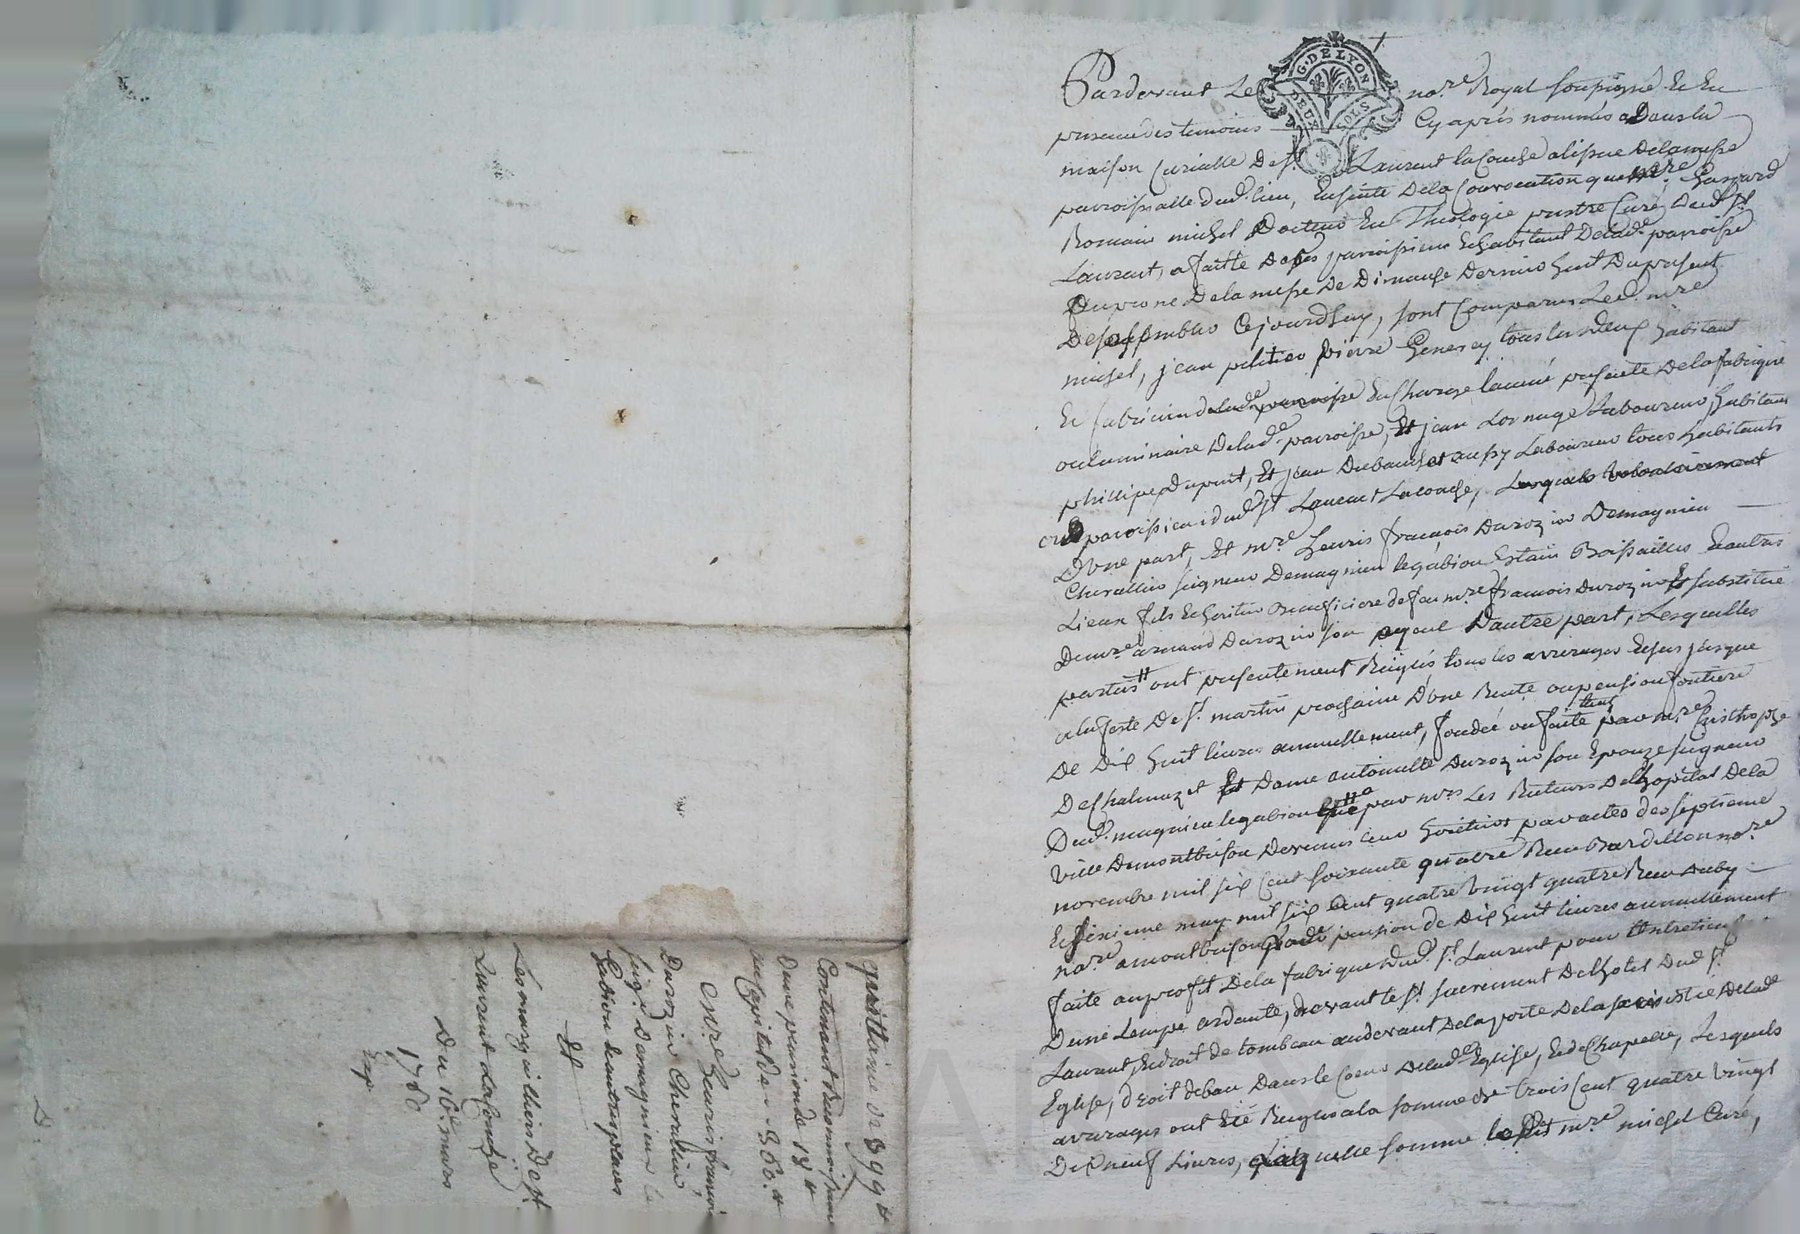 G. DE LYON
DEUX SOLS
Pardevant Le no.re Royal soussigné Et En
presence des temoins Cy après nommés a Dans la
maison Curialle De st. Laurent la Conche a lissue De la messe
parroissialle dud. lieu, Ensuite De la Convocation que mre. Gaspard
Romain michel Docteur En Theologie prestre Curé Dud. st.
Laurent, a faitte De ses parroissiens Et habitant De lad.e parroisse
Du prone De la messe De Dimanche Dernier huit Du present
De s'assembler Cejourdhuy, sont Comparus Led. mre
michel, jean pelitier pierre Genery tous les deux habitant
Et fabricien de lad.e parroisse En Charge lannée presente De la fabrique
ou luminaire De lad.e parroisse, Et jean Lornage Laboureur habitant
phillipe Dupuit, Et jean Dubanchet aussy Laboureur tous habitants
paroissiens dud. st Laurent La Conche, Lesquels volontairement
D'une part, Et mre henris françois Durozier De magnieu
Chevallier seigneur De magnieu le gabion Estain Boissailles Et autres
Lieux fils Et heritier Beneficiere de feu mre françois Durozier Et substitué
De mre armand Durozier son ayeul D'autre part, Lesquelles
parties ont presentement Reiglés tous les arrerages Echus jusque
a la feste De st. martin prochaine D'une Rente ou pension fonciere
De Dix huit livres annuellement, fondée ou faitte par mre Christhophe
De Chalmazel Et Dame antoinette Durozier son Epouze seigneur
Dud. magnieu le gabion par mrs Les Recteurs De lhopital De la
Ville De montbrison Devenus leur heritiers par actes des septieme
novembre mil six Cent soixante quatre Receu Bardillon no.re
Et sixieme may mil six Cent quatre Vingt quatre Receu Duby
no.re a montbrison pension de Dix huit livres annuellement
faite au profit De la fabrique Dud. st. Laurent pour l'Entretien
D'une Lampe ardante, Devant le st. sacrement De lhotel Dud. st
Laurent, Endroit de tombeau au devant De la porte De la sacristie De lad.e
Eglise, droit de banc Dans le Coeur De lad.e Eglise, Et de Chapelle, Lesquels
arrerages ont Eté Reiglés a la somme de trois Cent quatre Vingt
Dix neuf Livres, Laquelle somme Led. mre michel Curé,
quittance De 399 tt
Contenant Reconnoissance
D'une pension de 18 tt
au Capital De 360 tt
a mre henris francois
Durozier Chevallier,
seig.r De magnieu Le
Gabion Et autres places
Et
Les marguilliers De st
Laurent La Conche
Du 16e mars
1780
Exp.